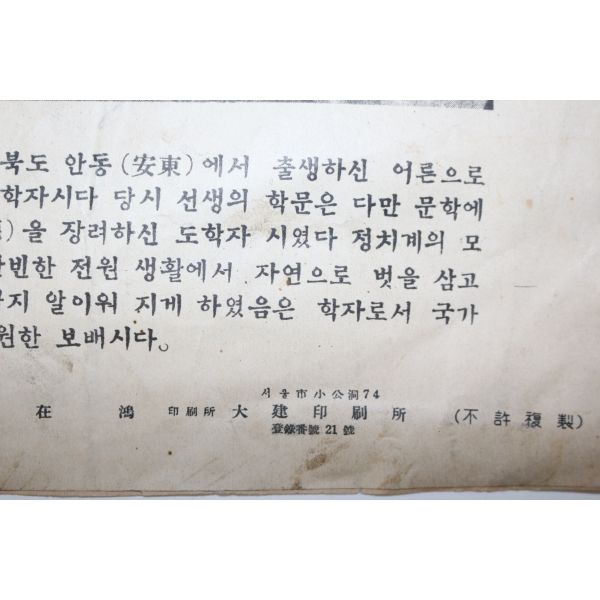 북도 안동(安東)에서 출생하신 어른으로
학자시다 당시 선생의 학문은 다만 문학에
)을 장려하신 도학자 시였다 정치계의 모
한 전원 생활에서 자연으로 벗을 삼고
지 알이워 지게 하였음은 학자로서 국가
원한 보배시다。
서울市小公洞74
在鴻 印刷所 大建印刷所 (不許複製)
登錄番號 21 號